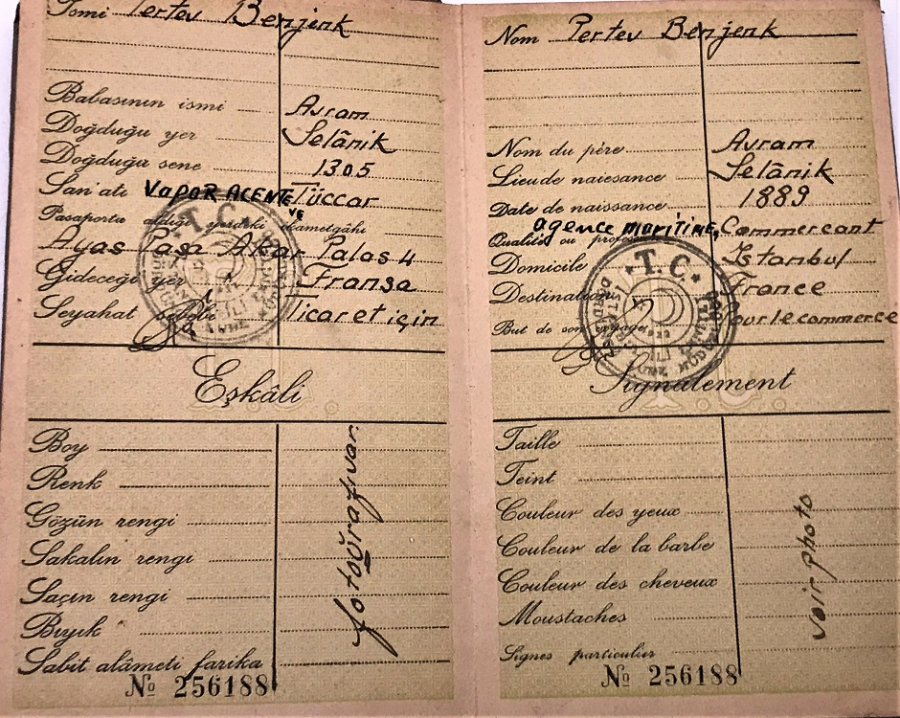 İsmi Pertev Benjenk
Babasının ismi Avram
Doğduğu yer Selânik
Doğduğu sene 1305
San'atı VAPOR ACENTE ve Tüccar
Pasaportu aldığı yerdeki ikametgâhı
Ayas Paşa Akar Palas 4
Gideceği yer Fransa
Seyahat sebebi Ticaret için
T.C.
Eşkâli
Boy
Renk
Gözün rengi
Sakalın rengi
Saçın rengi
Bıyık
Sabit alâmeti farika
fotoğrafvar.
No 256188
Nom Pertev Benjenk
Nom du père Avram
Lieu de naissance Selânik
Date de naissance 1889
agence maritime, Commercant
Qualité ou profession
Domicile Istanbul
Destination France
But de son voyage Pour le commerce
T.C.
Signalement
Taille
Teint
Couleur des yeux
Couleur de la barbe
Couleur des cheveux
Moustaches
Signes particulier
voir photo
No 256188